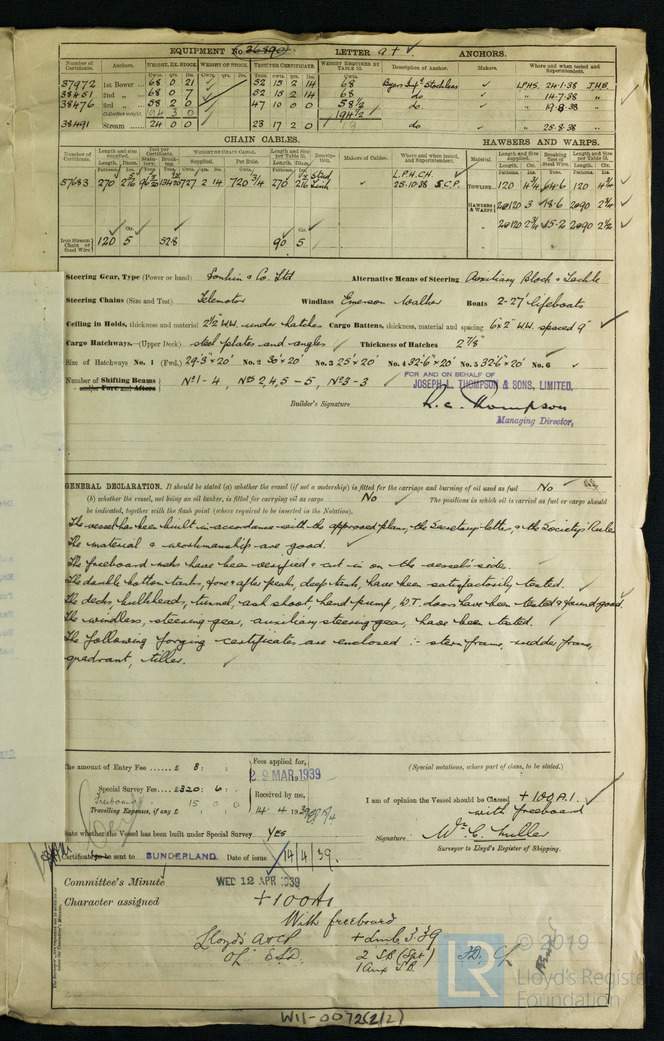 EQUIPMENT No. 26890 LETTER a + ANCHORS.
Number of Certificate. Anchors. WEIGHT, EX. STOCK. WEIGHT OF STOCK. TEST PER CERTIFICATE. WEIGHT REQUIRED BY TABLE 53. Description of Anchor. Makers. Where and when tested and Superintendent.
37972 1st Bower 68 0 21 52 15 2 14 68 Byers Stockless LPHS. 24-1-38 J.H.B.
38451 2nd „ 68 0 7 52 15 2 14 68 do „ 14-7-38 „
38476 3rd „ 58 2 0 47 10 0 0 58½ do „ 19-8-38 „
Collective weight 194 3 0 194½
38491 Stream 24 0 0 23 17 2 0 do „ 25-8-38
CHAIN CABLES. HAWSERS AND WARPS.
Number of Certificate. Length and size supplied. Test per Certificate. WEIGHT OF CHAIN CABLE. Length and Size per Table 53. Description. Makers of Cables. Where and when tested, and Superintendent. Material Length and Size supplied. Breaking Test of Steel Wire. Length and Size per Table 53.
57683 270 2 1/16 727 2 14 720 3/4 270 2 1/16 Stud Link L.P.H.CH. 25-10-38 S.C.P. TOWLINE 120 4¾ 64.6 120 4¾
HAWSERS & WARPS 2@120 3 18.6 2@90 2¾
„ 2@120 2¾ 15.2 2@90 2½
Iron Stream Chain or Steel Wire 120 5 52.8 90 5
Steering Gear, Type (Power or hand) Donkin & Co. Ltd Alternative Means of Steering Auxiliary Block & Tackle
Steering Chains (Size and Test) Telemotor Windlass Emerson Walker Boats 2-27' lifeboats
Ceiling in Holds, thickness and material 2½" W.W. under hatches Cargo Battens, thickness, material and spacing 6x2" W.W. spaced 9"
Cargo Hatchways.—(Upper Deck) steel plates and angles Thickness of Hatches 2⅞"
Size of Hatchways No. 1 (Fwd.) 29'-3"x20' No. 2 30'x20' No. 3 25'x20' No. 4 32'-6"x20' No. 5 32'-6"x20' No. 6
Number of Shifting Beams and/or Fore and Afters No 1-4, Nos 2,4,5-5, No 3-3
FOR AND ON BEHALF OF
JOSEPH L. THOMPSON & SONS, LIMITED.
Builder's Signature. R.C. Thompson
Managing Director,
GENERAL DECLARATION. It should be stated (a) whether the vessel (if not a motorship) is fitted for the carriage and burning of oil used as fuel No
(b) whether the vessel, not being an oil tanker, is fitted for carrying oil as cargo No The positions in which oil is carried as fuel or cargo should
be indicated, together with the flash point (where required to be inserted in the Notation).
The vessel has been built in accordance with the approved plans, the Secretary's letters, & the Society's Rules
The material & workmanship are good.
The freeboard marks have been verified & cut in on the vessel's side.
The double bottom tanks, fore & after peaks, deep tank, have been satisfactorily tested.
The decks, bulkheads, tunnel, ash shoot, hand pump, W.T. doors have been tested & found good.
The windlass, steering gear, auxiliary steering gear, have been tested.
The following forging certificates are enclosed :- stern frame, rudder frame,
quadrant, tiller.
The amount of Entry Fee ...... £ 8 : :
Fees applied for,
29 MAR. 1939
(Special notations, where part of class, to be stated.)
Special Survey Fee £320 : 6 :
Freeboard 15 0 0
Received by me,
14.4.1939
Travelling Expenses, if any £
I am of opinion the Vessel should be Classed +100A.1.
with freeboard
State whether the Vessel has been built under Special Survey YES
Signature. Wm. C. Miller
Surveyor to Lloyd's Register of Shipping.
Certificate to be sent to SUNDERLAND Date of issue 14/4/39.
Committee's Minute WED 12 APR 1939
Character assigned +100A1
With freeboard
Lloyd's A&CP +LMC 3.39
2 SB (Spt)
1 Aux S.B.
© 2019
LR
Lloyd's Register
Foundation
W11-0072(2/2)